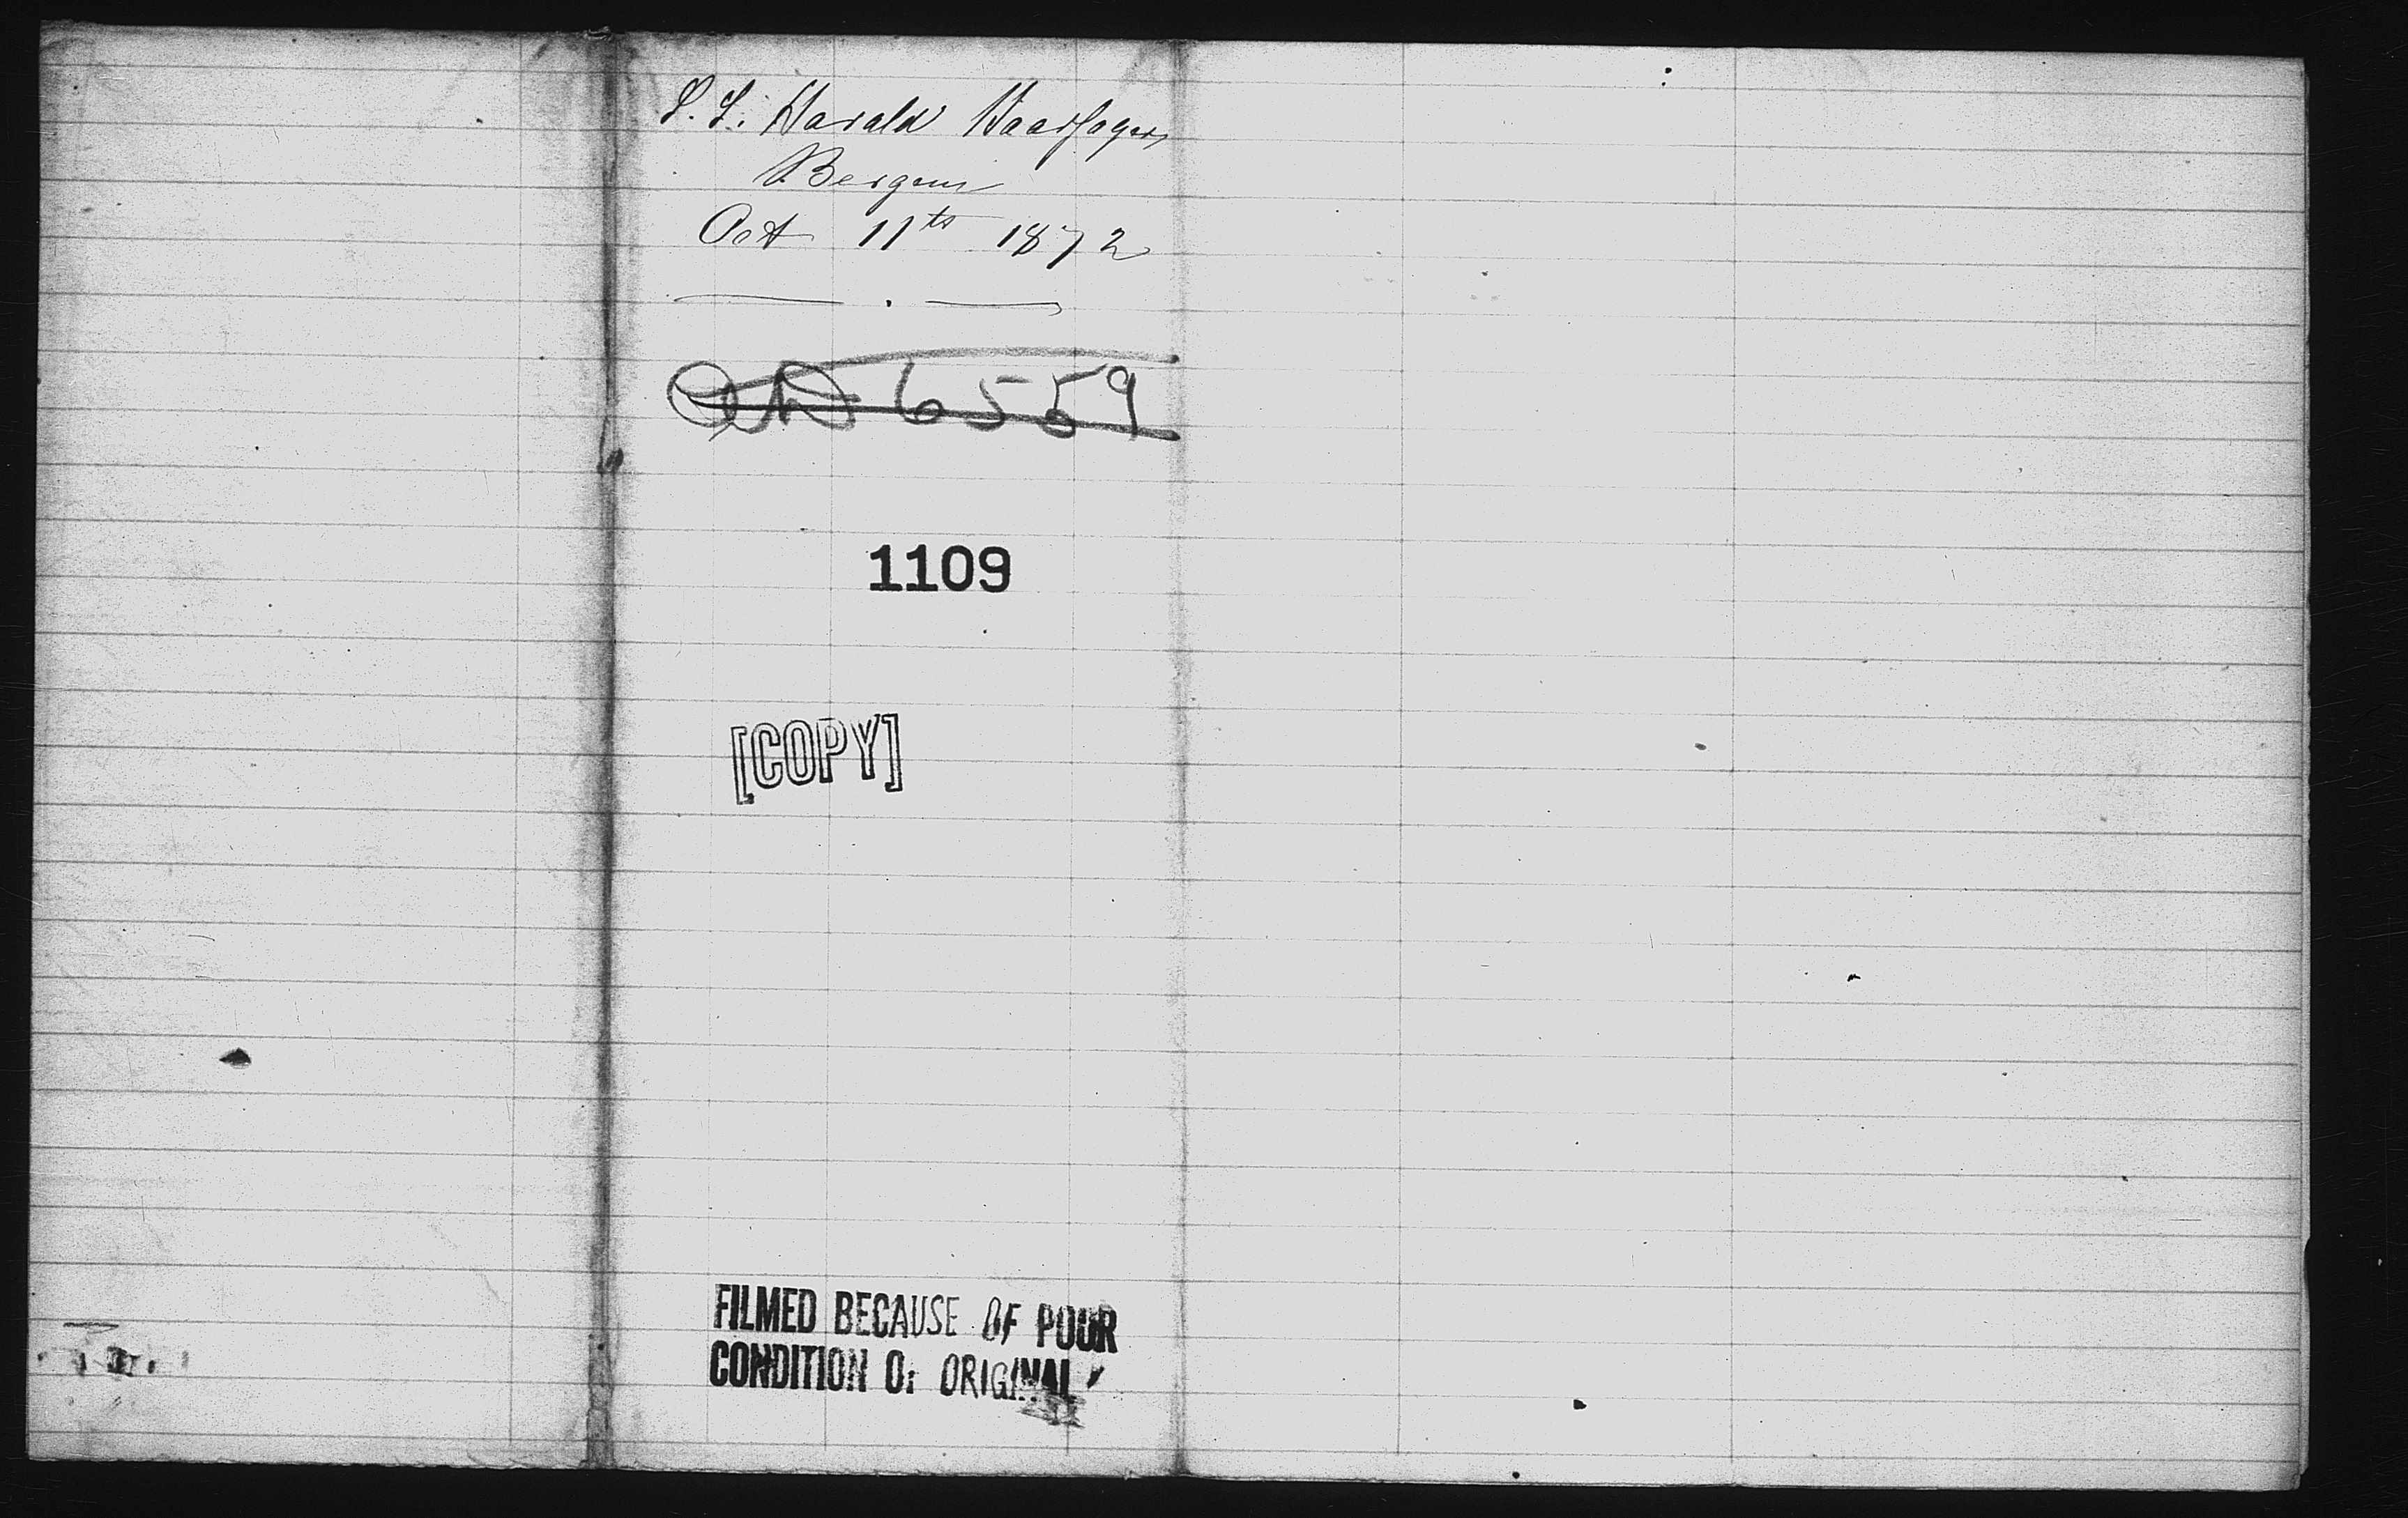 S. S. Harald Haarfager,
Bergen
Oct 11th 1872
6559
1109
[COPY]
FILMED BECAUSE OF POOR
CONDITION OF ORIGINAL